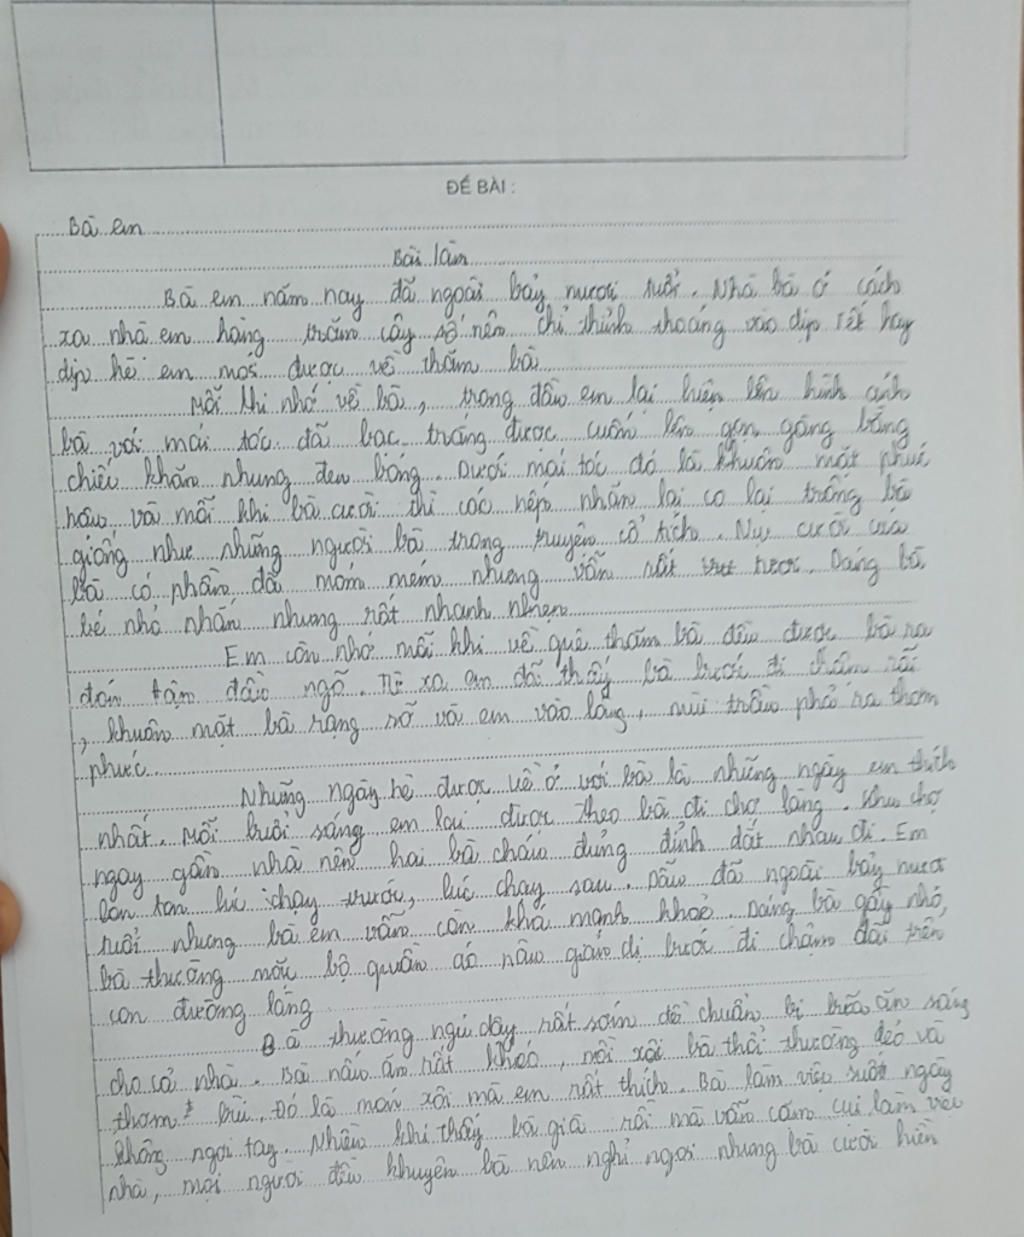 ĐỀ BÀI:
Bà em
Bài làm
Bà em năm nay đã ngoài bảy mươi tuổi. Nhà bà ở cách
xa nhà em hàng trăm cây số nên chỉ thỉnh thoảng vào dịp tết hay
dịp hè em mới được về thăm bà
Mỗi khi nhớ về bà, trong đầu em lại hiện lên hình ảnh
bà với mái tóc đã bạc trắng được cuốn lên gọn gàng bằng
chiếc khăn nhung đen bóng. Dưới mái tóc đó là khuôn mặt phúc
hậu và mỗi khi bà cười thì các nếp nhăn lại co lại trông bà
giống như những người bà trong truyện cổ tích. Nụ cười của
bà có phần đã móm mém nhưng vẫn rất tươi. Dáng bà
bé nhỏ nhắn nhưng rất nhanh nhẹn
Em còn nhớ mỗi khi về quê thăm bà đều được bà ra
đón tận đầu ngõ. Từ xa em đã thấy bà bước đi chậm rãi
, khuôn mặt bà rạng rỡ và em vào lòng, mùi trầu phả ra thơm
phức
Những ngày hè được về ở với bà là những ngày em thích
nhất. Mỗi buổi sáng em lại được theo bà đi chợ làng. Khu chợ
ngay gần nhà nên hai bà cháu đủng đỉnh dắt nhau đi. Em
lon ton lúc chạy trước, lúc chạy sau. Dẫu đã ngoài bảy mươi
tuổi nhưng bà em vẫn còn khá mạnh khoẻ. Dáng bà gầy nhỏ,
bà thường mặc bộ quần áo nâu giản dị bước đi chậm dãi trên
con đường làng
Bà thường ngủ dậy rất sớm để chuẩn bị bữa ăn sáng
cho cả nhà. Bà nấu ăn rất khéo, nồi xôi bà thổi thường dẻo và
thơm bùi. Đó là món xôi mà em rất thích. Bà làm việc suốt ngày
không ngơi tay. Nhiều khi thấy bà già rồi mà vẫn cặm cụi làm việc
nhà, mọi người đều khuyên bà nên nghỉ ngơi nhưng bà cười hiền